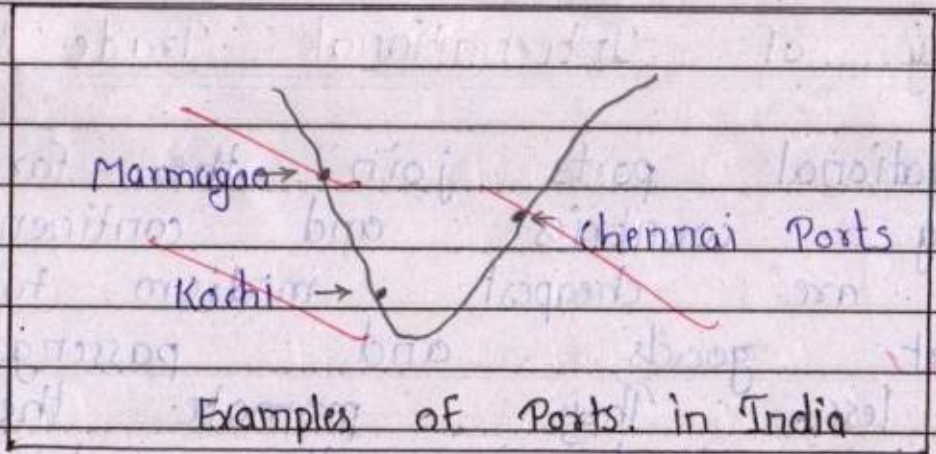 Marmagao
Chennai Ports
Kochi
Examples of Ports. in India